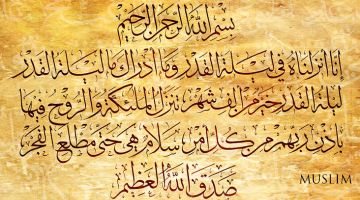 بسم الله الرحمن الرحيم
إنا أنزلناه في ليلة القدر وما أدراك ما ليلة القدر
ليلة القدر خير من ألف شهر تنزل الملئكة والروح فيها
بإذن ربهم من كل أمر سلام هي حتى مطلع الفجر
صدق الله العظيم
MUSLIM